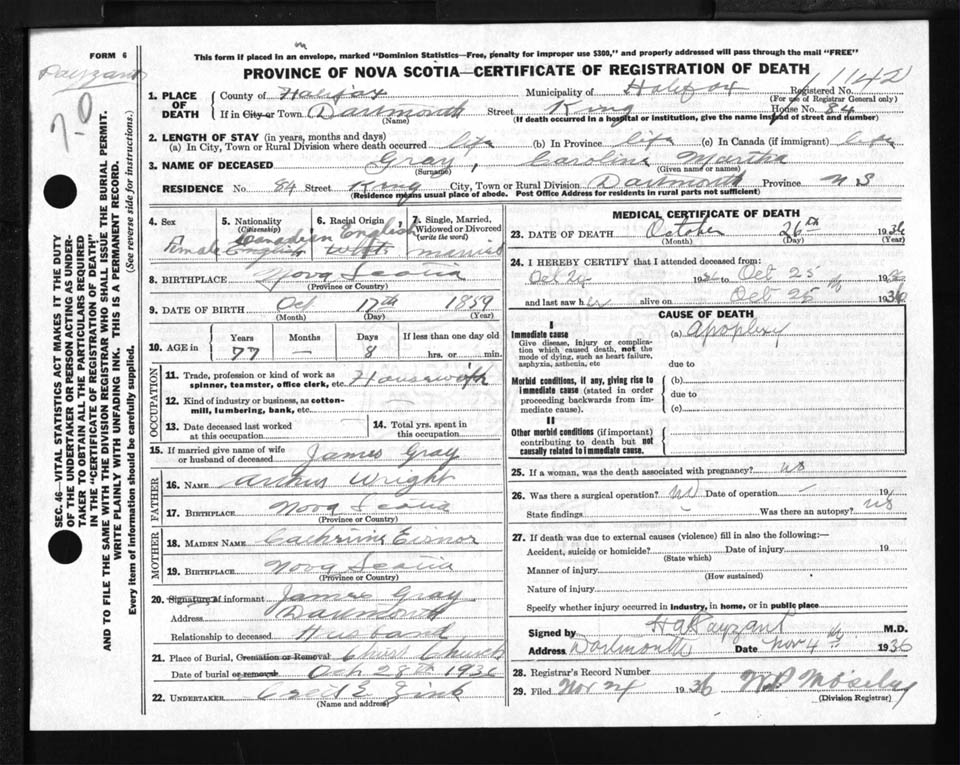 FORM 6
This form if placed in an envelope, marked "Dominion Statistics—Free, penalty for improper use $300," and properly addressed will pass through the mail "FREE"
PROVINCE OF NOVA SCOTIA—CERTIFICATE OF REGISTRATION OF DEATH
Payzant
SEC. 46—VITAL STATISTICS ACT MAKES IT THE DUTY
OF THE UNDERTAKER OR PERSON ACTING AS UNDER-
TAKER TO OBTAIN ALL THE PARTICULARS REQUIRED
IN THE "CERTIFICATE OF REGISTRATION OF DEATH"
AND TO FILE THE SAME WITH THE DIVISION REGISTRAR WHO SHALL ISSUE THE BURIAL PERMIT.
WRITE PLAINLY WITH UNFADING INK. THIS IS A PERMANENT RECORD.
Every item of information should be carefully supplied. (See reverse side for instructions.)
1. PLACE OF DEATH
County of Halifax Municipality of Halifax Registered No. 1142
(For use of Registrar General only)
If in City or Town Dartmouth Street King House No. 84
(Name) (If death occurred in a hospital or institution, give the name instead of street and number)
2. LENGTH OF STAY (in years, months and days)
(a) In City, Town or Rural Division where death occurred life (b) In Province life (c) In Canada (if immigrant) life
3. NAME OF DECEASED Gray, Caroline Martha
(Surname) (Given name or names)
RESIDENCE No. 84 Street King City, Town or Rural Division Dartmouth Province N S
(Residence means usual place of abode. Post Office Address for residents in rural parts not sufficient)
4. Sex 5. Nationality (Citizenship) 6. Racial Origin 7. Single, Married, Widowed or Divorced (write the word)
Canadian English
Female English married
8. BIRTHPLACE Nova Scotia
(Province or Country)
9. DATE OF BIRTH Oct 17th 1859
(Month) (Day) (Year)
10. AGE in Years Months Days If less than one day old
77 — 8 hrs. or min.
OCCUPATION
11. Trade, profession or kind of work as
spinner, teamster, office clerk, etc. Housewife
12. Kind of industry or business, as cotton-
mill, lumbering, bank, etc. —
13. Date deceased last worked
at this occupation
14. Total yrs. spent in
this occupation
15. If married give name of wife
or husband of deceased James Gray
FATHER
16. NAME Wright
17. BIRTHPLACE Nova Scotia
(Province or Country)
MOTHER
18. MAIDEN NAME Cathrine Eisnor
19. BIRTHPLACE Nova Scotia
(Province or Country)
20. Signature of informant James Gray
Address Dartmouth
Relationship to deceased Husband
21. Place of Burial, Cremation or Removal Christ Church
Date of burial or removal Oct 28th 1936
22. UNDERTAKER Zink
(Name and address)
MEDICAL CERTIFICATE OF DEATH
23. DATE OF DEATH October 26th 1936
(Month) (Day) (Year)
24. I HEREBY CERTIFY that I attended deceased from:
Oct 24 1936 Oct 25 1936
and last saw her alive on Oct 25 1936
CAUSE OF DEATH
I
Immediate cause (a) Apoplexy
Give disease, injury or complica-
tion which caused death, not the
mode of dying, such as heart failure,
asphyxia, asthenia, etc due to
Morbid conditions, if any, giving rise to
immediate cause (stated in order
proceeding backwards from im-
mediate cause).
(b)
due to
(c)
II
Other morbid conditions (if important)
contributing to death but not
causally related to immediate cause.
25. If a woman, was the death associated with pregnancy? no
26. Was there a surgical operation? no Date of operation — 19
State findings Was there an autopsy? no
27. If death was due to external causes (violence) fill in also the following:—
Accident, suicide or homicide? Date of injury 19
(State which)
Manner of injury
(How sustained)
Nature of injury
Specify whether injury occurred in industry, in home, or in public place
Signed by H G Payzant M.D.
Address Dartmouth Date Nov 4 1936
28. Registrar's Record Number
29. Filed Nov 24 1936 Moseley
(Division Registrar)